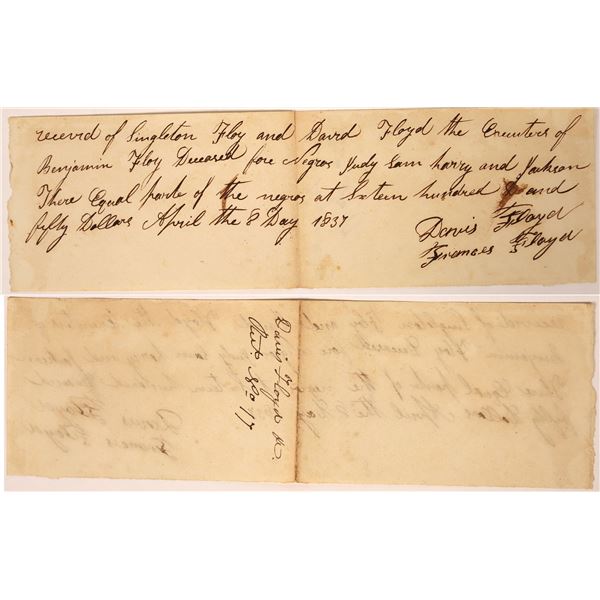 receved of Singleton Floy and David Floyd the Executers of
Benjamin Floy Deceased fore Negros Judy Sam harry and Jackson
There Equal parte of the negros at Sixteen hundred and
fifty Dollars April the 8 Day 1837
Davis Floyd
Frances Floyd
Davis Floyd
Rect. No 17